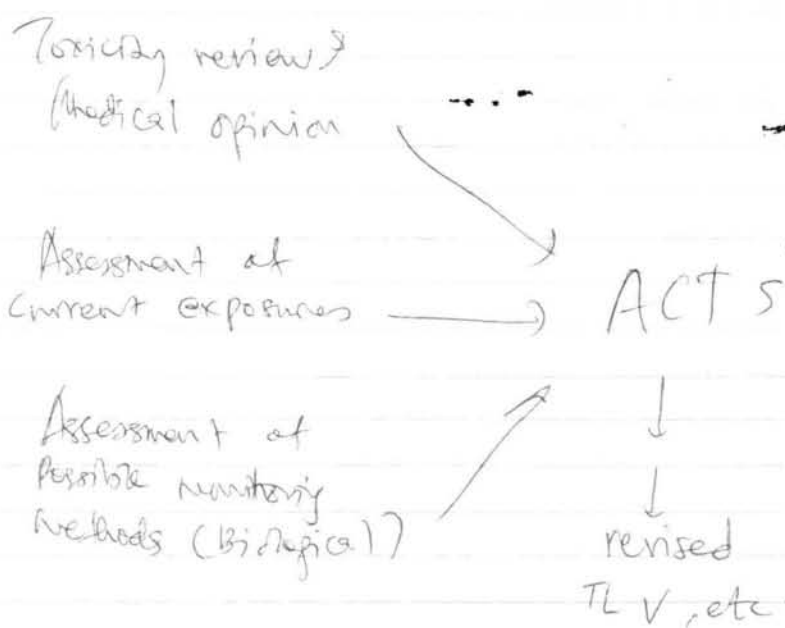 Toxicity reviews
Medical opinion
Assessment of
current exposures
Assessment of
possible monitoring
methods (Biological)
ACTS
revised
TLV, etc